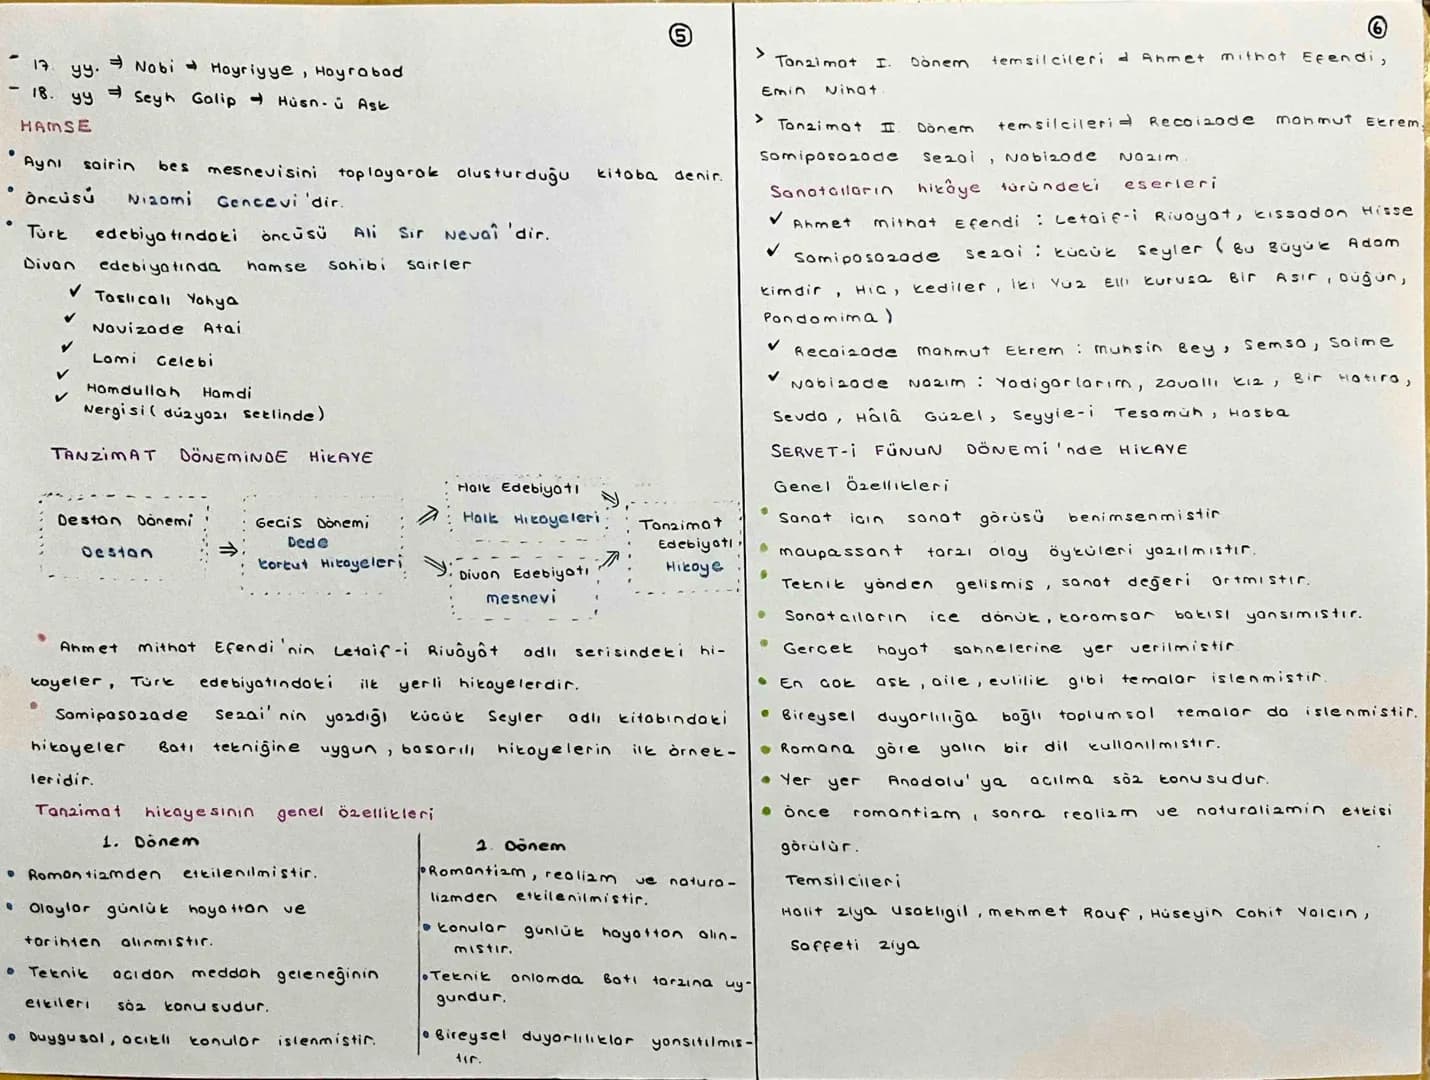 5
- 17. yy. ⇒ Nabi → Hayriyye, Hayrabad
- 18. yy ⇒ Seyh Galip → Hüsn-ü Ask
HAMSE
• Aynı sairin bes mesnevisini toplayarak olusturduğu kitaba denir.
• öncüsü Nizami Gencevi'dir.
• Türk edebiyatındaki öncüsü Ali Sir Nevaî'dir.
Divan edebiyatında hamse sahibi sairler
✓ Taslıcalı Yahya
✓ Navizade Atai
✓ Lami Celebi
✓ Hamdullah Hamdi
✓ Nergisi (düzyazı seklinde)
TANZİMAT DÖNEMİNDE HİKAYE
Destan Dönemi
Destan
⇒
Gecis Dönemi
Dede
Korkut Hikayeleri
⇒
Halk Edebiyatı
Halk Hikayeleri
⇒
Divan Edebiyatı
mesnevi
⇒
⇒
Tanzimat
Edebiyatı
Hikaye
• Ahmet mithat Efendi'nin Letaif-i Rivâyât adlı serisindeki hi-
kayeler, Türk edebiyatındaki ilk yerli hikayelerdir.
• Samipasazade Sezai'nin yazdığı Kücük Seyler adlı kitabındaki
hikayeler Batı tekniğine uygun, basarılı hikayelerin ilk örnek-
leridir.
Tanzimat hikayesinin genel özellikleri
1. Dönem
• Romantizmden etkilenilmistir.
• Olaylar günlük hayattan ve
tarihten alınmıstır.
• Teknik acıdan meddah geleneğinin
etkileri söz konusudur.
• Duygusal, acıklı konular islenmistir.
2. Dönem
• Romantizm, realizm ve natura-
lizmden etkilenilmistir.
• Konular gunlük hayattan alın-
mıstır.
• Teknik anlamda Batı tarzına uy-
gundur.
• Bireysel duyarlılıklar yansıtılmıs-
tır.
6
> Tanzimat I. Dönem temsilcileri ⇒ Ahmet mithat Efendi,
Emin Nihat
> Tanzimat II. Dönem temsilcileri ⇒ Recaizade mahmut Ekrem,
Samipasazade Sezai, Nabizade Nazım
Sanatcıların hikâye türündeki eserleri
✓ Ahmet mithat Efendi : Letaif-i Rivayat, Kıssadan Hisse
✓ Samipasazade Sezai : Kücük Seyler (Bu Büyük Adam
Kimdir, Hic, Kediler, İki Yüz Elli Kurusa Bir Asır, Düğün,
Pandomima)
✓ Recaizade mahmut Ekrem : muhsin Bey, Semsa, Saime
✓ Nabizade Nazım : Yadigarlarım, Zavallı Kız, Bir Hatıra,
Sevda, Hâlâ Güzel, Seyyie-i Tesamüh, Hasba
SERVET-İ FÜNUN DÖNEMİ'nde HİKAYE
Genel Özellikleri
• Sanat icin sanat görüsü benimsenmistir
• maupassant tarzı olay öyküleri yazılmıstır.
• Teknik yönden gelismis, sanat değeri artmıstır.
• Sanatcıların ice dönük, karamsar bakısı yansımıstır.
• Gercek hayat sahnelerine yer verilmistir
• En cok ask, aile, evlilik gibi temalar islenmistir.
• Bireysel duyarlılığa bağlı toplumsal temalar da islenmistir.
• Romana göre yalın bir dil kullanılmıstır.
• Yer yer Anadolu'ya acılma söz konusudur.
• önce romantizm, sonra realizm ve naturalizmin etkisi
görülür.
Temsilcileri
Halit Ziya Usaklıgil, mehmet Rauf, Hüseyin Cahit Yalcın,
Saffeti Ziya